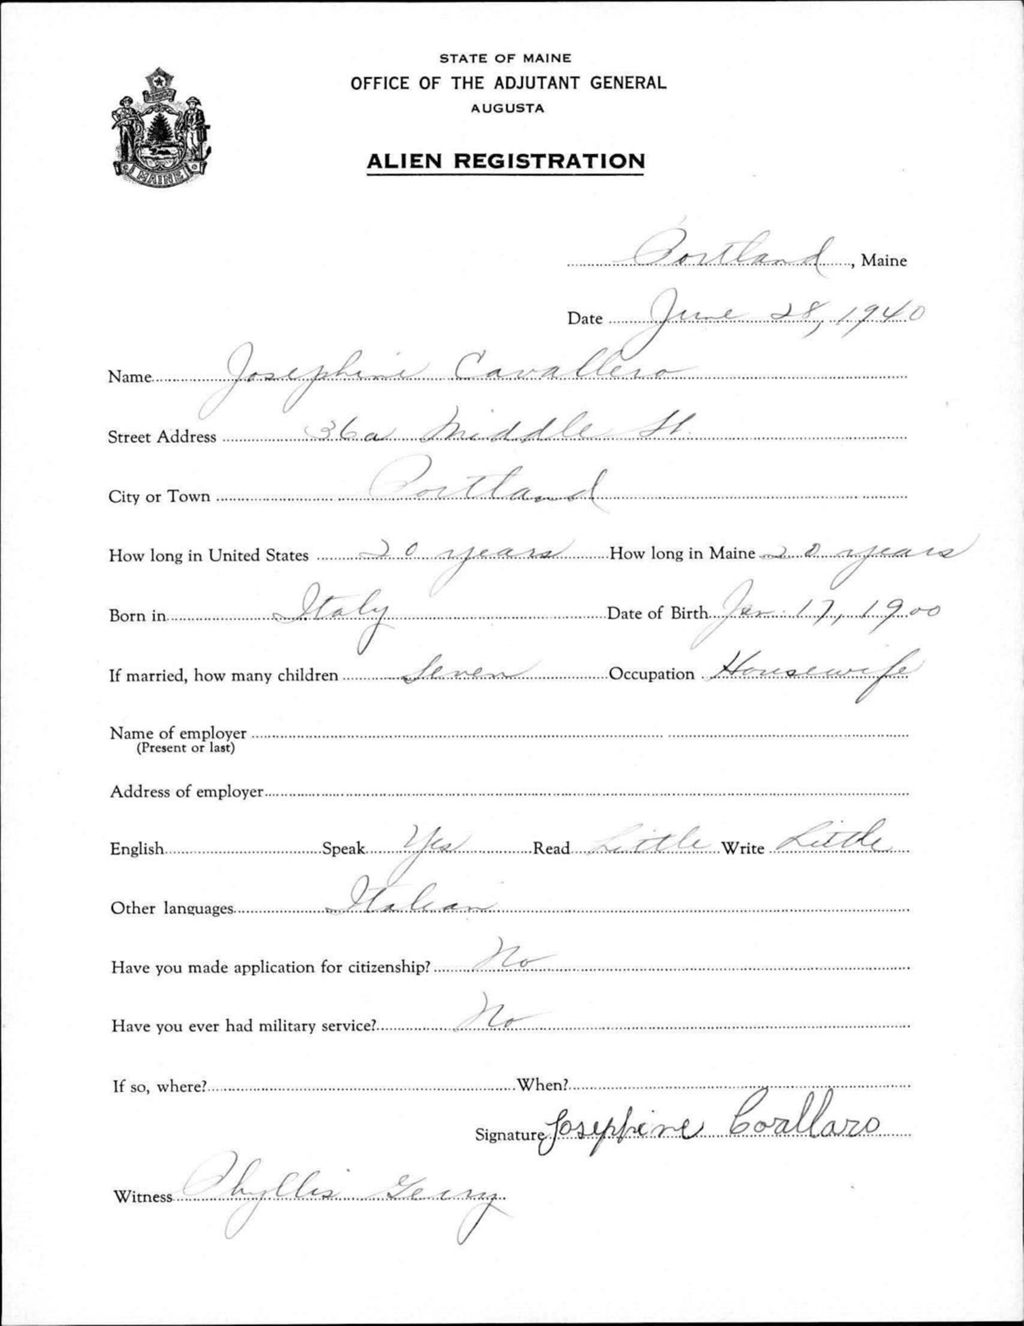 STATE OF MAINE
OFFICE OF THE ADJUTANT GENERAL
AUGUSTA
MAINE
ALIEN REGISTRATION
Portland, Maine
Date June 28, 1940
Name Josephine Cavallero
Street Address 36a Middle St.
City or Town Portland
How long in United States 20 years How long in Maine 20 years
Born in Italy Date of Birth Jan. 17, 1900
If married, how many children Seven Occupation Housewife
Name of employer
(Present or last)
Address of employer
English Speak Yes Read Little Write Little
Other languages Italian
Have you made application for citizenship? No
Have you ever had military service? No
If so, where? When?
Signature Josephine Coallaro
Witness Phyllis Gerry